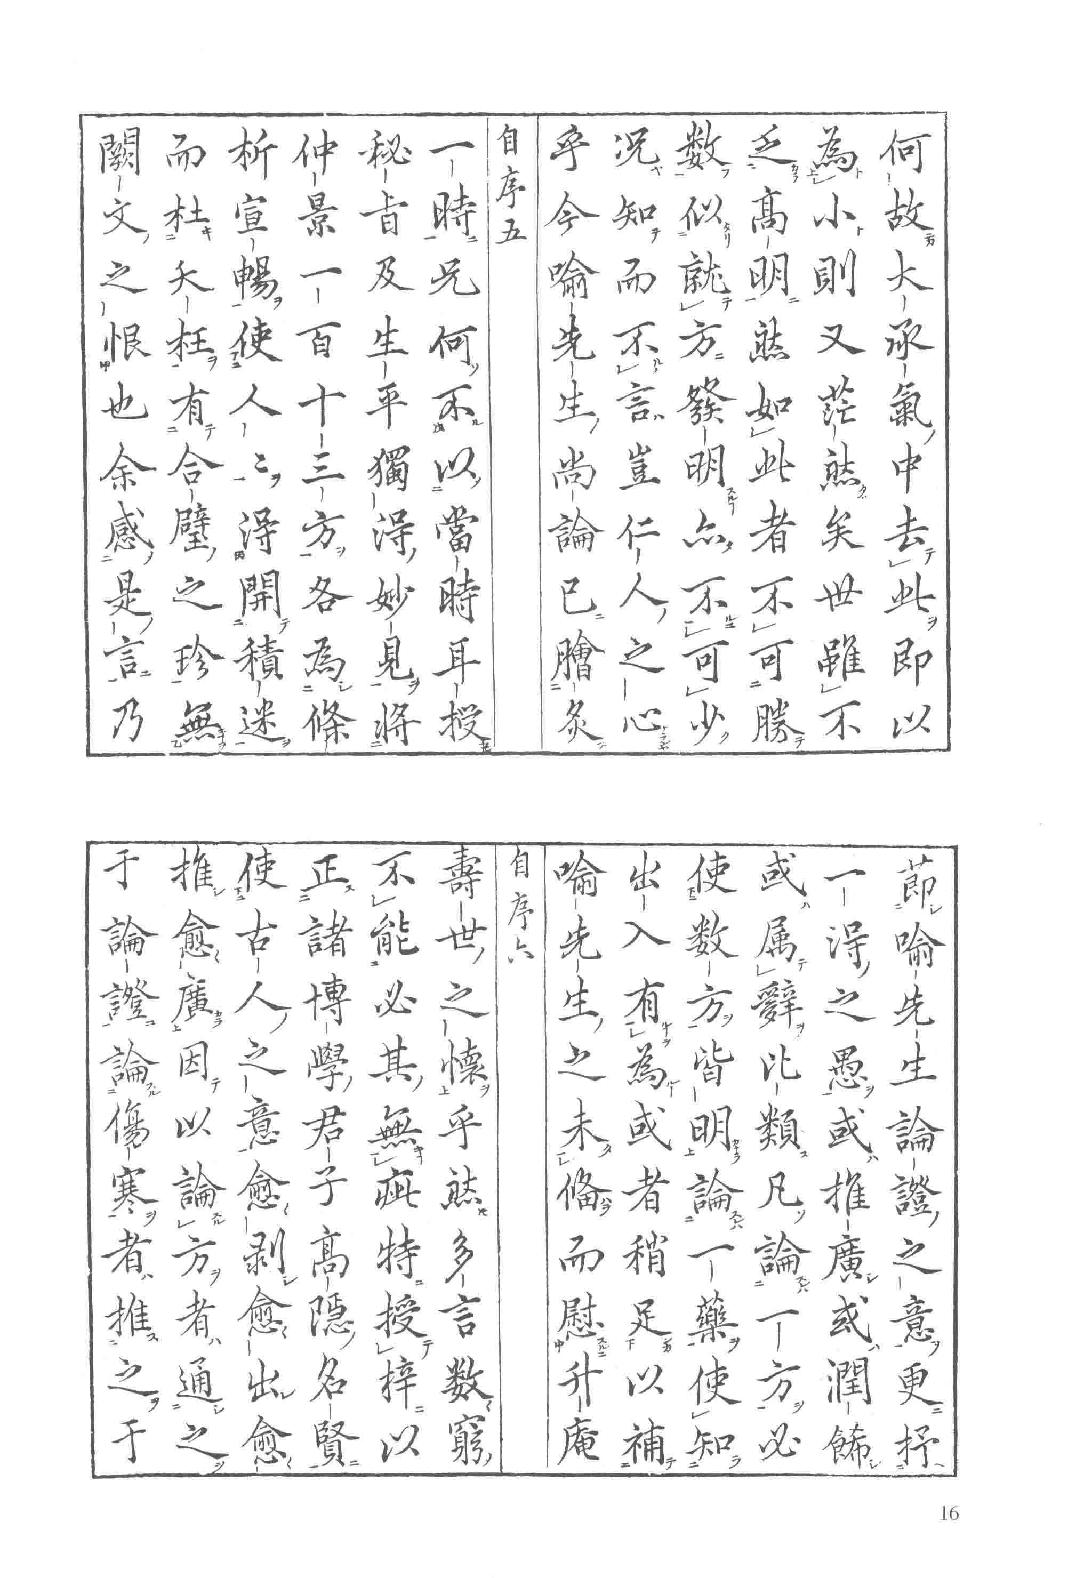 何故大承氣中去此即以
為小則又茫然矣世雖不
乏高明然如此者不可勝
數似就方發明亦不可少
況知而不言豈仁人之心
乎今喻先生尚論已膾炙
自序五
一時兄何不以當時耳授
秘旨及生平獨得妙見將
仲景一百十三方各為條
析宣暢使人〻得開積迷
而杜夭枉有合璧之珍無
闕文之恨也余感是言乃
節喻先生論證之意更抒
一得之愚或推廣或潤餙
或属辭比類凡論一方必
使数方皆明論一藥使知
出入有為或者稍足以補
喻先生之未俻而慰升庵
自序六
壽世之懷乎然多言數窮
不能必其無疵特授梓以
正諸博學君子高隱名賢
使古人之意愈剥愈出愈
推愈廣因以論方者通之
于論證論傷寒者推之于